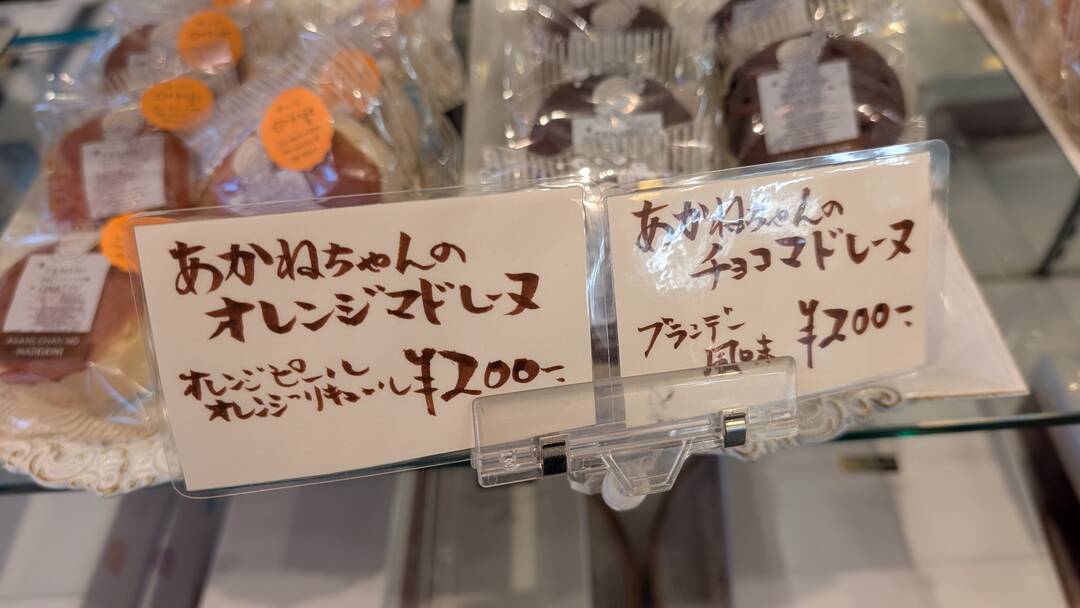 あかねちゃんの
オレンジマドレーヌ
オレンジピール
オレンジリキュール ¥200-
あかねちゃんの
チョコマドレーヌ
ブランデー
風味 ¥200-
AKANE CHAN NO
MADELEINE